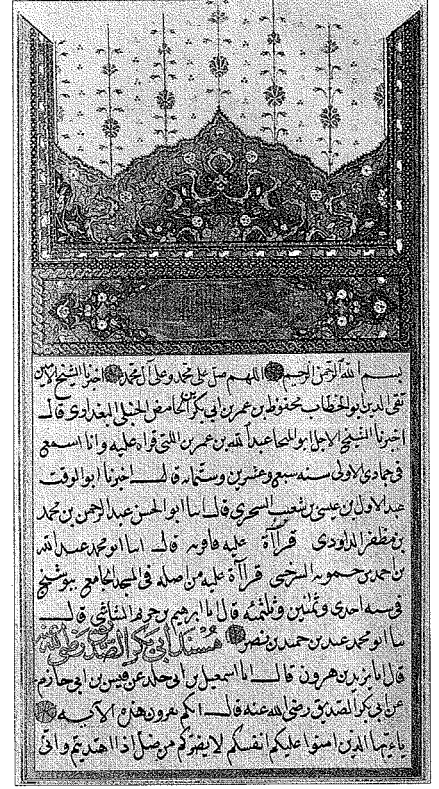 بسم الله الرحمن الرحيم اللهم صل على محمد وعلى آل محمد اخبرنا الشيخ الامين
تقى الدين ابو الخطاب محفوظ بن عمر بن ابى بكر بن الحامض الحنبلى البغدادى قال
اخبرنا الشيخ الاجل ابو المنجا عبد الله بن عمر بن اللتى قراة عليه وانا اسمع
فى جمادى الاولى سنه سبع وعشرين وستمايه قال اخبرنا ابو الوقت
عبد الاول بن عيسى بن شعيب السجزى قال اما ابو الحسن عبد الرحمن بن محمد
بن مظفر الداودى قراآة عليه قال اما ابو محمد عبد الله
بن احمد بن حمويه السرخسى قراآة عليه من اصله فى المسجد الجامع ببوشنج
فى سنه احدى وثمنين وثلثمئه قال اما ابرهيم بن خزيم الشاشى قال
ما ابو محمد عبد بن حميد بن نصر مسند ابى بكر الصديق رضى الله عنه
قال اما يزيد بن هرون قال اما اسمعيل بن ابى خلد عن قيس بن ابى حازم
عن ابى بكر الصديق رضى الله عنه قال انكم تقرون هذه الآيه
يا ءيها الذين امنوا عليكم انفسكم لا يضركم من ضل اذا اهتديتم وانى